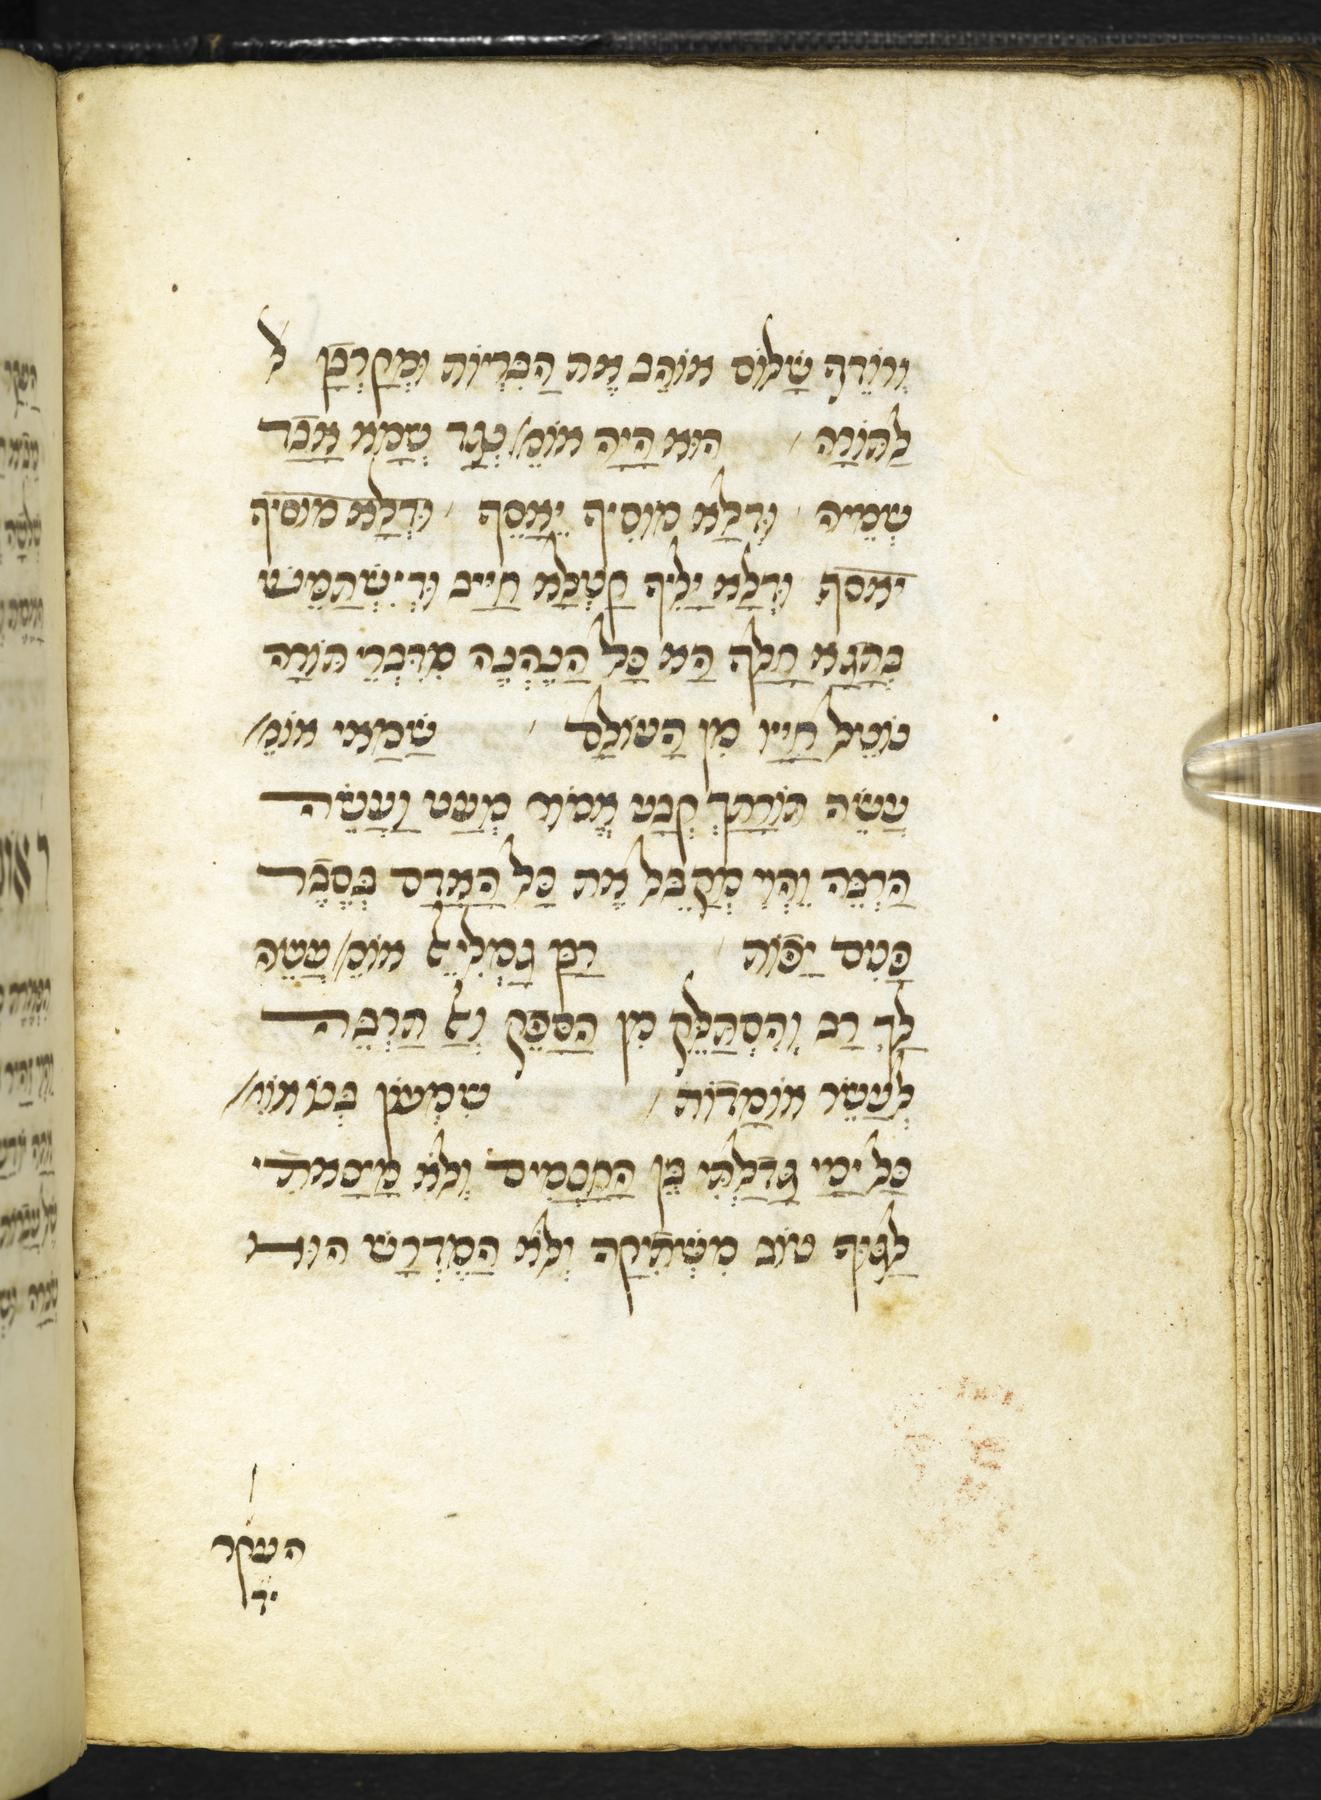 וְרוֹדֵף שָׁלוֹם אוֹהֵב אֶת הַבְּרִיּוֹת וּמְקַרְבָן ל
לַתּוֹרָה הוּא הָיָה אוֹמֵ/ נְגַד שְׁמָא אֲבַד
שְׁמֵיהּ וּדְלָא מוֹסִיף יֵאָסֵף וּדְלָא מוסיף
יאסף וּדְלָא יָלִיף קַטְלָא חַיָּיב וּדְיִשְׁתַּמֵּשׁ
בְתָגָא חֲלַף הָא כָּל הַנֶהְנֶה מִדִּבְרֵי תּוֹרָה
נוֹטֵל חַיָּיו מִן הָעוֹלָם שַׁמַּאי אוֹמֵ/
עֲשֵׂה תּוֹרָתְךָ קֶבַע אֱמוֹר מְעַט וַעֲשֵׂה
הַרְבֵּה וֶהֱוֵי מְקַבֵּל אֶת כָּל הָאָדָם בְּסֵבֶר
פָּנִים יָפוֹת רַבָּן גַּמְלִיאֵל אוֹמֵ/ עֲשֵׂה
לְךָ רַב וְהִסְתַּלֵּק מִן הַסָּפֵק וְאַל תַּרְבֶּה
לְעַשֵּׂר אוֹמָדוֹת שִׁמְעוֹן בְּנוֹ אוֹמֵ/
כָּל יָמַי גָּדַלְתִּי בֵּין הַחֲכָמִים וְלֹא מָצָאתִי
לַגּוּף טוֹב מִשְּׁתִיקָה וְלֹא הַמִּדְרָשׁ הוּא
העקר
יד